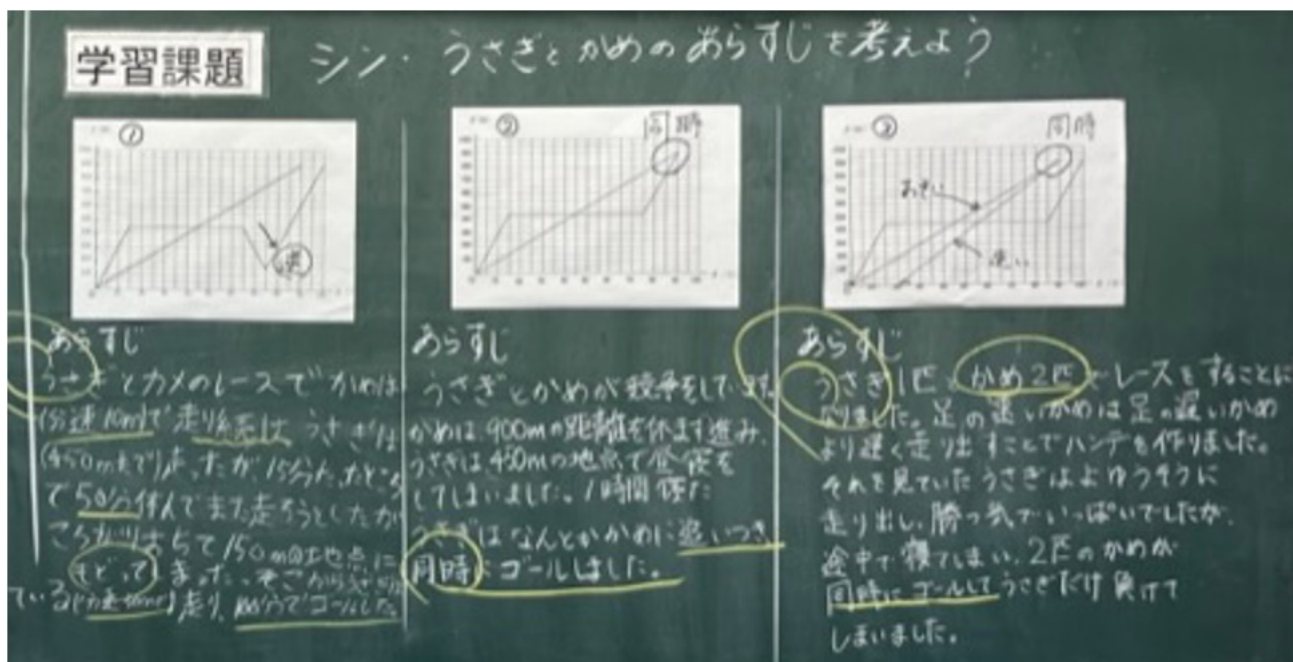 学習課題
シン・うさぎとかめのあらすじを考えよう
①
逆
あらすじ
うさぎとカメのレースでかめは
分速10mで走り続け うさぎは
450mまで走ったが15分たったところ
で50分休んでまた走ろうとしたが
150mの地点に
もどってしまった。そこから
走り、100分でゴールした
②
同時
あらすじ
うさぎとかめが競争をしています。
かめは、900mの距離を休まず進み、
うさぎは、450mの地点で昼寝を
してしまいました。1時間寝た
うさぎはなんとかかめに追いつき、
同時にゴールしました。
③
同時
おそい
速い
あらすじ
うさぎ1匹とかめ2匹でレースをすることに
なりました。足の速いかめは足の遅いかめ
より遅く走り出すことでハンデを作りました。
それを見ていたうさぎはよゆうそうに
走り出し、勝つ気でいっぱいでしたが、
途中で寝てしまい、2匹のかめが
同時にゴールしてうさぎだけ負けて
しまいました。